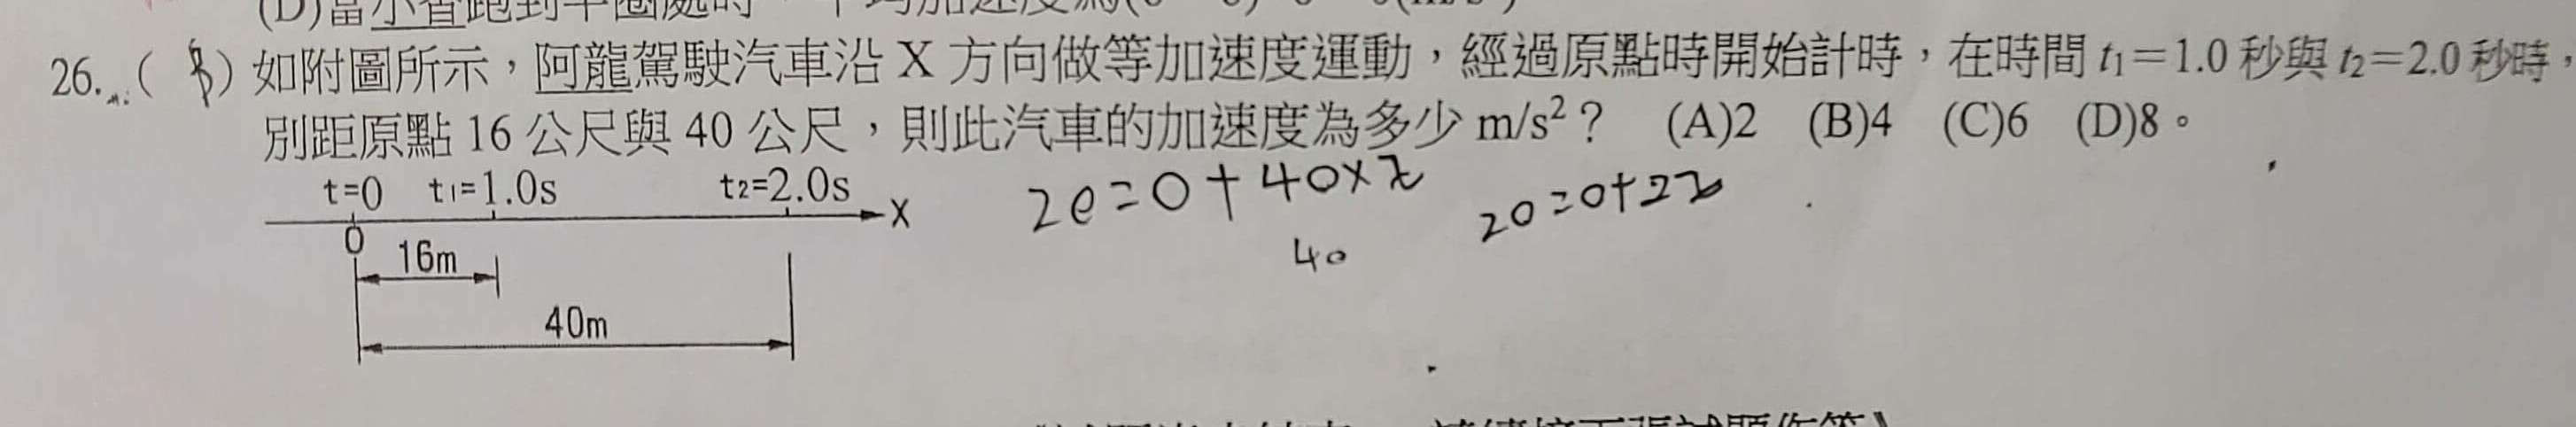 26. (B) 如附圖所示，阿龍駕駛汽車沿 X 方向做等加速度運動，經過原點時開始計時，在時間 t₁＝1.0 秒與 t₂＝2.0 秒時，
別距原點 16 公尺與 40 公尺，則此汽車的加速度為多少 m/s²？ (A)2 (B)4 (C)6 (D)8。
t=0 t₁=1.0s t₂=2.0s X
0
16m
40m
20=0+40×2
40
20=0+2